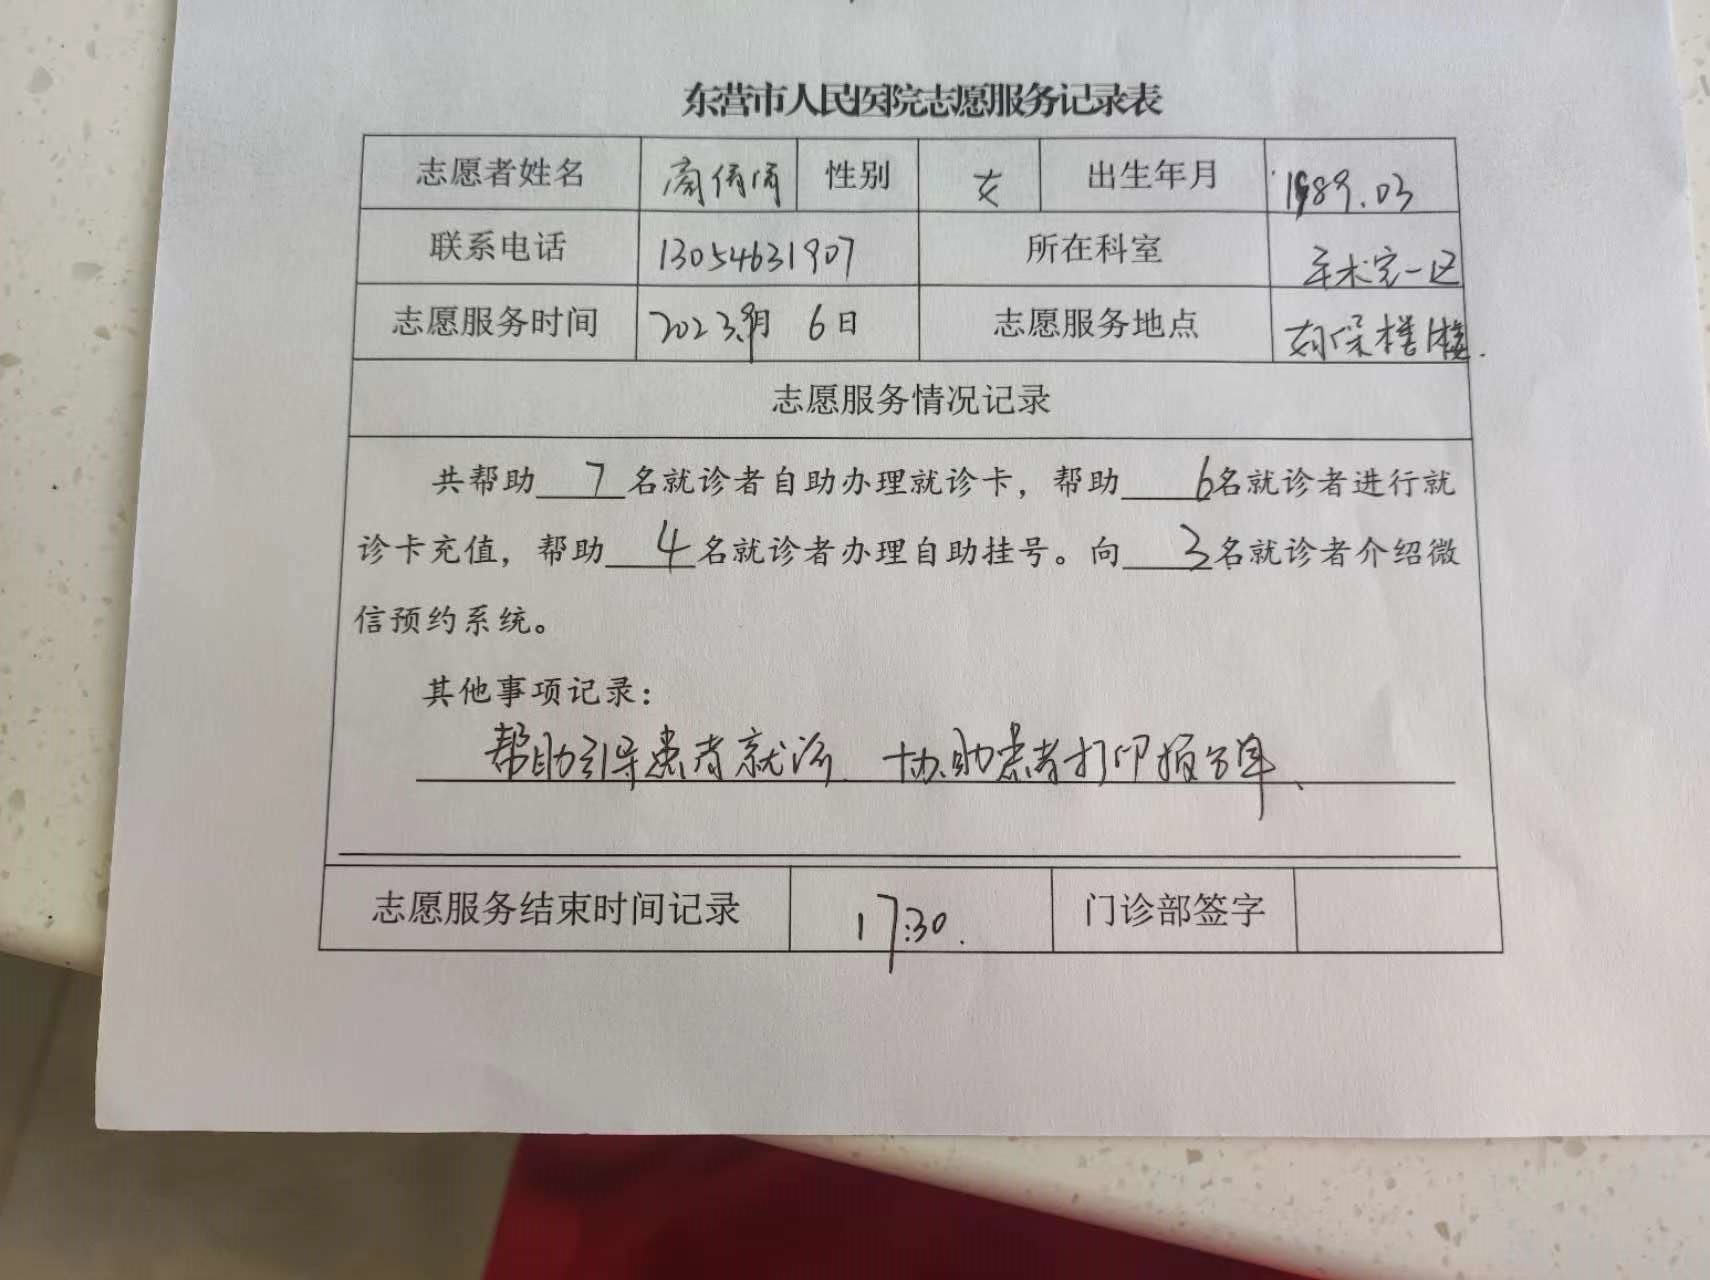 东营市人民医院志愿服务记录表
志愿者姓名 倩倩 性别 女 出生年月 1989.03
联系电话 13054631907 所在科室 手术室一区
志愿服务时间 2023.9月 6日 志愿服务地点 妇保楼1楼.
志愿服务情况记录
共帮助 7 名就诊者自助办理就诊卡，帮助 6名就诊者进行就
诊卡充值，帮助 4 名就诊者办理自助挂号。向 3名就诊者介绍微
信预约系统。
其他事项记录：
帮助引导患者就诊、协助患者打印报告单、
志愿服务结束时间记录 17:30. 门诊部签字